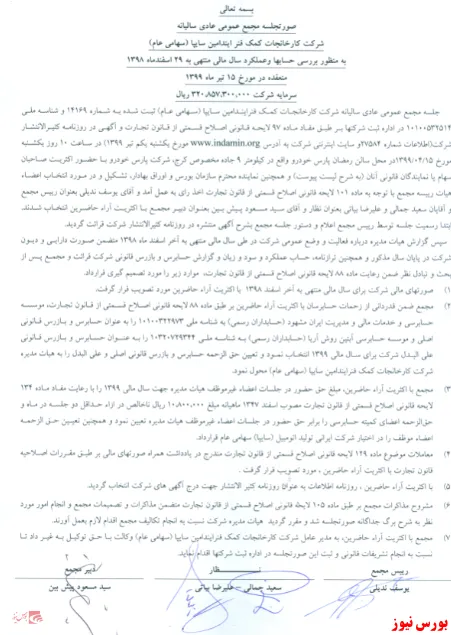 بسمه تعالی
صورتجلسه مجمع عمومی عادی سالیانه
شرکت کارخانجات کمک فنر ایندامین سایپا (سهامی عام)
به منظور بررسی حسابها وعملکرد سال مالی منتهی به ۲۹ اسفندماه ۱۳۹۸
منعقده در مورخ ۱۵ تیر ماه ۱۳۹۹
سرمایه شرکت ۳۲۰,۸۵۷,۳۰۰,۰۰۰ ریال
جلسه مجمع عمومی عادی سالیانه شرکت کارخانجات کمک فنرایندامین سایپا (سهامی عام) ثبت شده به شماره ۱۴۱۶۹ و شناسه ملی
۱۰۱۰۰۵۳۲۵۱۴ در اداره ثبت شرکتها بر طبق مفاد ماده ۹۷ لایحه قانونی اصلاح قسمتی از قانون تجارت و آگهی در روزنامه کثیرالانتشار
شرکت(اطلاعات شماره ۲۷۵۸۴ وسایت اینترنتی شرکت به آدرس www.indamin.org مورخ یکشنبه یکم تیر ۱۳۹۹) در ساعت ۱۰ روز یکشنبه
مورخ ۱۳۹۹/۰۴/۱۵ در محل سالن رمضان پارس خودرو واقع در کیلومتر ۹ جاده مخصوص کرج، شرکت پارس خودرو با حضور اکثریت صاحبان
سهام یا نمایندگان قانونی آنان (به شرح لیست پیوست) و همچنین نماینده محترم سازمان بورس و اوراق بهادار، تشکیل و در مورد انتخاب اعضاء
هیات رییسه مجمع با توجه به ماده ۱۰۱ لایحه قانونی اصلاح قسمتی از قانون تجارت اخذ رای به عمل آمد و آقای یوسف ندیلی بعنوان رییس مجمع
و آقایان سعید جمالی و علیرضا بیاتی بعنوان نظار و آقای سید مسعود پیش بین بعنوان دبیر مجمع با اکثریت آراء حاضرین انتخاب شدند.
ابتدا رسمیت جلسه توسط رییس مجمع اعلام و دستور جلسه مجمع بشرح آگهی منتشره در روزنامه کثیرالانتشار شرکت قرائت گردید.
سپس گزارش هیات مدیره درباره فعالیت و وضع عمومی شرکت در طی سال مالی منتهی به آخر اسفند ماه ۱۳۹۸ متضمن صورت دارایی و دیون
شرکت در پایان سال مذکور و همچنین ترازنامه، حساب عملکرد و سود و زیان و گزارش حسابرس و بازرس قانونی شرکت قرائت و مجمع پس از
بحث و تبادل نظر ضمن رعایت ماده ۸۸ لایحه قانونی اصلاح قسمتی از قانون تجارت، موارد زیر را مورد تصمیم گیری قرارداد.
۱) صورتهای مالی شرکت برای سال مالی منتهی به آخر اسفند ۱۳۹۸ با اکثریت آراء حاضرین مورد تصویب قرار گرفت.
۲) مجمع ضمن قدردانی از زحمات حسابرسان با اکثریت آراء حاضرین بر طبق ماده ۸۸ لایحه قانونی اصلاح قسمتی از قانون تجارت، موسسه
حسابرسی و خدمات مالی و مدیریت ایران مشهود (حسابداران رسمی) به شناسه ملی ۱۰۱۰۰۳۲۲۹۷۳ را به عنوان حسابرس و بازرس قانونی
اصلی و موسسه حسابرسی آبتین روش آریا (حسابداران رسمی) به شناسه ملی ۱۰۳۲۰۷۲۹۳۴۴ را به عنوان حسابرس و بازرس قانونی
علی البدل شرکت برای سال مالی ۱۳۹۹ انتخاب نمود و تعیین حق الزحمه حسابرس و بازرس قانونی اصلی و علی البدل را به هیات مدیره
شرکت کارخانجات کمک فنرایندامین سایپا (سهامی عام) محول نمود.
۳) مجمع با اکثریت آراء حاضرین، مبلغ حق حضور در جلسات اعضاء غیرموظف هیات مدیره جهت سال مالی ۱۳۹۹ را با رعایت مفاد ماده ۱۳۴
لایحه قانونی اصلاح قسمتی از قانون تجارت مصوب اسفند ۱۳۴۷ ماهیانه مبلغ ۱۰,۸۰۰,۰۰۰ ریال ناخالص در ازاء حداقل دو جلسه در ماه و
حق‌الزحمه اعضای کمیته حسابرسی را برابر حق حضور در جلسات اعضاء غیرموظف هیات مدیره تعیین نمود و همچنین تعیین حق الزحمه
اعضاء موظف را در اختیار شرکت ایرانی تولید اتومبیل (سایپا) سهامی عام قرارداد.
۴) معاملات موضوع ماده ۱۲۹ لایحه قانونی اصلاح قسمتی از قانون تجارت مندرج در یادداشت همراه صورتهای مالی بر طبق مقررات اصلاحیه
قانون تجارت با اکثریت آراء حاضرین ، مورد تصویب قرار گرفت .
۵) با اکثریت آراء حاضرین ، روزنامه اطلاعات به عنوان روزنامه کثیر الانتشار جهت درج آگهی های شرکت انتخاب گردید.
۶) مشروح مذاکرات مجمع بر طبق ماده ۱۰۵ لایحه قانونی اصلاح قسمتی از قانون تجارت متضمن مذاکرات و تصمیمات مجمع و انجام امور مورد
نظر به شرح برگ جداگانه صورتجلسه شد و مقرر گردید هیات مدیره شرکت نسبت به انجام تکالیف مجمع اقدام لازم بعمل آورند.
۷) مجمع با اکثریت آراء حاضرین، به مدیر عامل شرکت کارخانجات کمک فنرایندامین سایپا (سهامی عام) وکالت با حق توکیل به غیر داد تا
نسبت به انجام تشریفات قانونی و ثبت این صورتجلسه در اداره ثبت شرکتها اقدام نماید.
رییس مجمع نظار دبیر مجمع
یوسف ندیلی سعید جمالی علیرضا بیاتی سید مسعود پیش بین
بورس نیوز